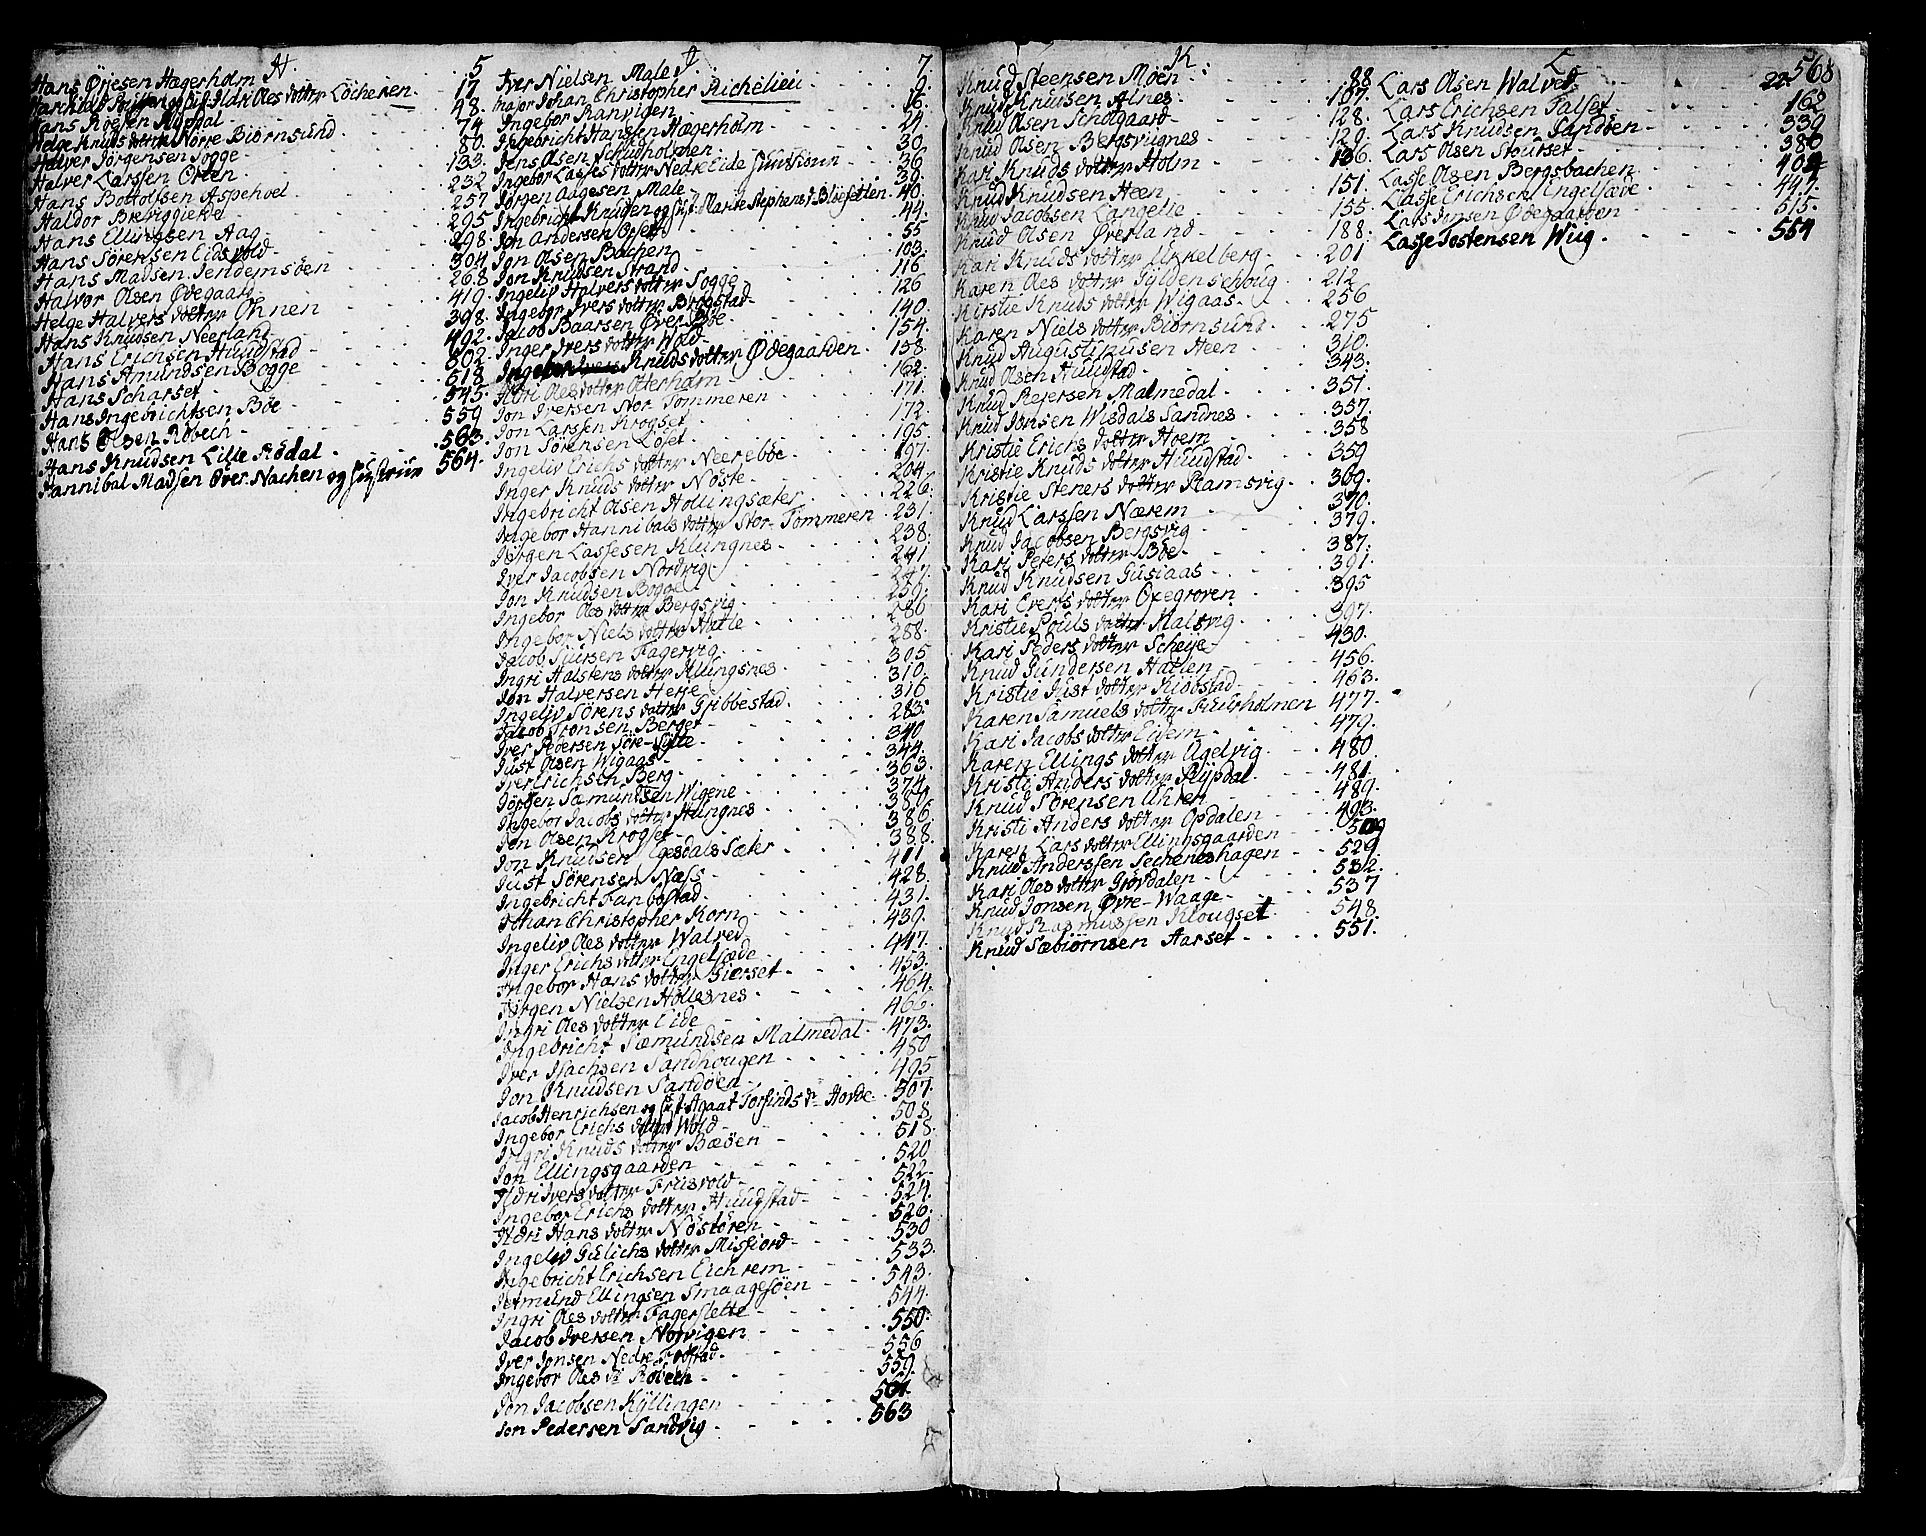 H.
Hans Ørjesen Hægerholm . . 5
Ildri Oles dotter Löcheren . . 17
Hans Roesen Rypdal . . 48.
Helge Knuds dotter Nörre Biörnsund . 74
Halver Jörgensen Sogge . . 80.
Halver Larssen Orten . . 133.
Hans Bottolfsen Aspehoel . . 232
Haldor Brevig . . 257
Hans Ellingsen Aag . . 295
Hans Sörensen Eidsvold . . 298.
Hans Madsen Sendemsöen . . 304
Halvor Olsen Ødegaard . . 268
Helge Halvers dotter Ohnen . . 419.
Hans Knudsen Neerland . . 398.
Hans Erichsen Huudstad . . 492.
Hans Amundsen Bogge . . 502
Hans Scharset . . 513
Hans Ingebrichtsen Böe . . 545.
Hans Olsen Röbech . . 559
Hans Knudsen Lille Rödal . . 563.
Hannibal Madsen Over Nachen og Hustrue 564.
J.
Iver Nielsen Male . . 7
Major Johan Christopher Richelieu . . 9.
Ingebor Ranvigen . . 16.
Ingebricht Hansen Hægerholm . . 24.
Jens Olsen Schudholmen . . 30
Ingebor Lasses dotter Nedre Eide . . 36
Jörgen Aagesen Male . . 39.
Ingebricht Knudsen og Marite Stephens d. . . 40.
Jon Andersen Orset . . 44.
Jon Olsen Bachen . . 55
Jon Knudsen Strand . . 103.
Ingeliv Halvers dotter Sogge . . 116
Ingebor Ivers dotter Brogstad . . 126
Jacob Baarsen Over Böe . . 140.
Inger Ivers dotter Wold . . 154.
Ingebor Knuds dotter Ødegaarden . 158.
Ildri Oles dotter Oterholm . . 162.
Jon Iversen Stor Tommeren . . 171.
Jon Larsen Krogset . . 172.
Jon Sörensen Löset . . 195.
Ingeliv Erichs dotter Neereböe . . 197.
Inger Knuds dotter Nöste . . 204.
Ingebricht Olsen Hollingsæter . . 226.
Ingebor Hannibals dotter Stor-Tommeren . 231.
Jörgen Lassesen Klungnes . . 238.
Iver Jacobsen Nordvig . . 241
Jon Knudsen Bogge . . 247.
Ingebor Oles dotter Bergsvig . . 259.
Ingebor Niels dotter Hatle . . 286
Jacob Siursen Fagervig . . 288.
Ingri Halstens dotter Klungsnes . . 305
Jon Halversen Heje . . 310.
Ingeliv Sörens dotter Gribbestad . . 316
Jacob Tronsen Berget . . 283.
Iver Pedersen Söre-Sylte . . 340
Just Olsen Wigaas . . 344.
Iver Erichsen Berg . . 363.
Jörgen Samundsen Wigene . . 374
Ingebor Jacobs dotter Hungnes . . 380
Jon Olsen Krogset . . 386.
Jon Knudsen Egesdals Sæter . . 388.
Just Sörensen Næss . . 411
Ingebricht Fanbostad . . 428.
Johan Christopher Korn . . 431.
Ingeliv Oles dotter Walved . . 439.
Inger Erichs dotter Engelsæde . . 447.
Ingebor Hans dotter Gierset . . 453.
Jörgen Nielsen Hollesnes . . 464.
Ingri Oles dotter Eide . . 466.
Ingebricht Siemundsen Malmedal . . 473.
Iver Isachsen Sandhougen . . 480
Jon Knudsen Sandöen . . 495
Jacob Henrichsen og Agaat Torfinds d. Hovde . 507.
Ingebor Erichs dotter Wold . . 508
Ingri Knuds dotter Bæöen . . 518.
Jon Ellingsgaarden . . 520
Ildri Ivers dotter Friisvold . . 522.
Ingebor Erichs dotter Huudstad . . 524.
Ildri Hans dotter Nöstören . . 526.
Ingeliv Gulichs dotter Misfiord . . 530
Ingebricht Erichsen Eichrem . . 533.
Jetmund Ellingsen Smaagesöen . . 543.
Ingri Oles dotter Fagerslette . . 544.
Jacob Iversen Norvigen . . 550.
Iver Jonsen Nedre Tofstad . . 556
Ingebor Oles dr Röbech . . 559.
Jon Jacobsen Kyllingen . . 561.
Jon Pedersen Sandvig . . 563
K.
Knud Steensen Moen . . 88
Knud Knudsen Alnes . . 107.
Knud Olsen Scholgaard . . 128.
Knud Olsen Bergsvignes . . 129.
Kari Knuds dotter Holm . . 136.
Knud Knudsen Heen . . 151.
Knud Jacobsen Langelie . . 155.
Knud Olsen Øverland . . 188.
Kari Knuds dotter Ukkelberg . . 201
Karen Oles dotter Gyldenschoug . . 212
Kirstie Knuds dotter Wigaas . . 256
Karen Niels dotter Biörnsund . . 275
Knud Augustinusen Heen . . 310.
Knud Olsen Huudstad . . 343.
Knud Pedersen Malmedal . . 351.
Knud Jonsen Wisdals Sandnes . . 357.
Kristie Erichs dotter Hoem . . 358
Kristie Knuds dotter Huudstad . . 359
Kristie Steners dotter Ramsvig . . 369.
Knud Larssen Nærem . . 370.
Knud Jacobsen Bergsvig . . 379.
Kari Peters dotter Böe . . 387.
Knud Knudsen Gusiaas . . 391.
Kari Everts dotter Oxegroven . . 395
Kristie Pouls dotter Malsvig . . 397.
Kari Peders dotter Scheije . . 430.
Knud Gundersen Hatlen . . 456.
Kristie Just dotter Kiöbstad . . 463.
Karen Samuels dotter Suderholmen 477.
Kari Jacobs dotter Eidem . . 479.
Karen Ellings dotter Ugelvig . . 480.
Kristi Anders dotter Rypdal . . 481.
Knud Sörensen Uhren . . 489.
Kristi Anders dotter Opdalen . . 493.
Karen Lars dotter Ellingsgaarden . . 509
Knud Anderssen Secheneshagen . . 529.
Kari Oles dotter Grövdalen . . 532.
Knud Jonsen Øvre-Waage . . 537
Knud Rasmussen Klougset . . 548.
Knud Sæbiörnsen Aarset . . 551.
L. 568
Lars Olsen Walvet . . 22.
Lars Erichsen Talset . . 162
Lars Knudsen Sandöen . . 339
Lars Olsen Stourset . . 380
Lasse Olsen Bergsbachen . . 404
Lasse Erichsen Engelsæde . . 447.
Lars Jonsen Ødegaarden . . 515.
Lasse Tostensen Wug . . 554